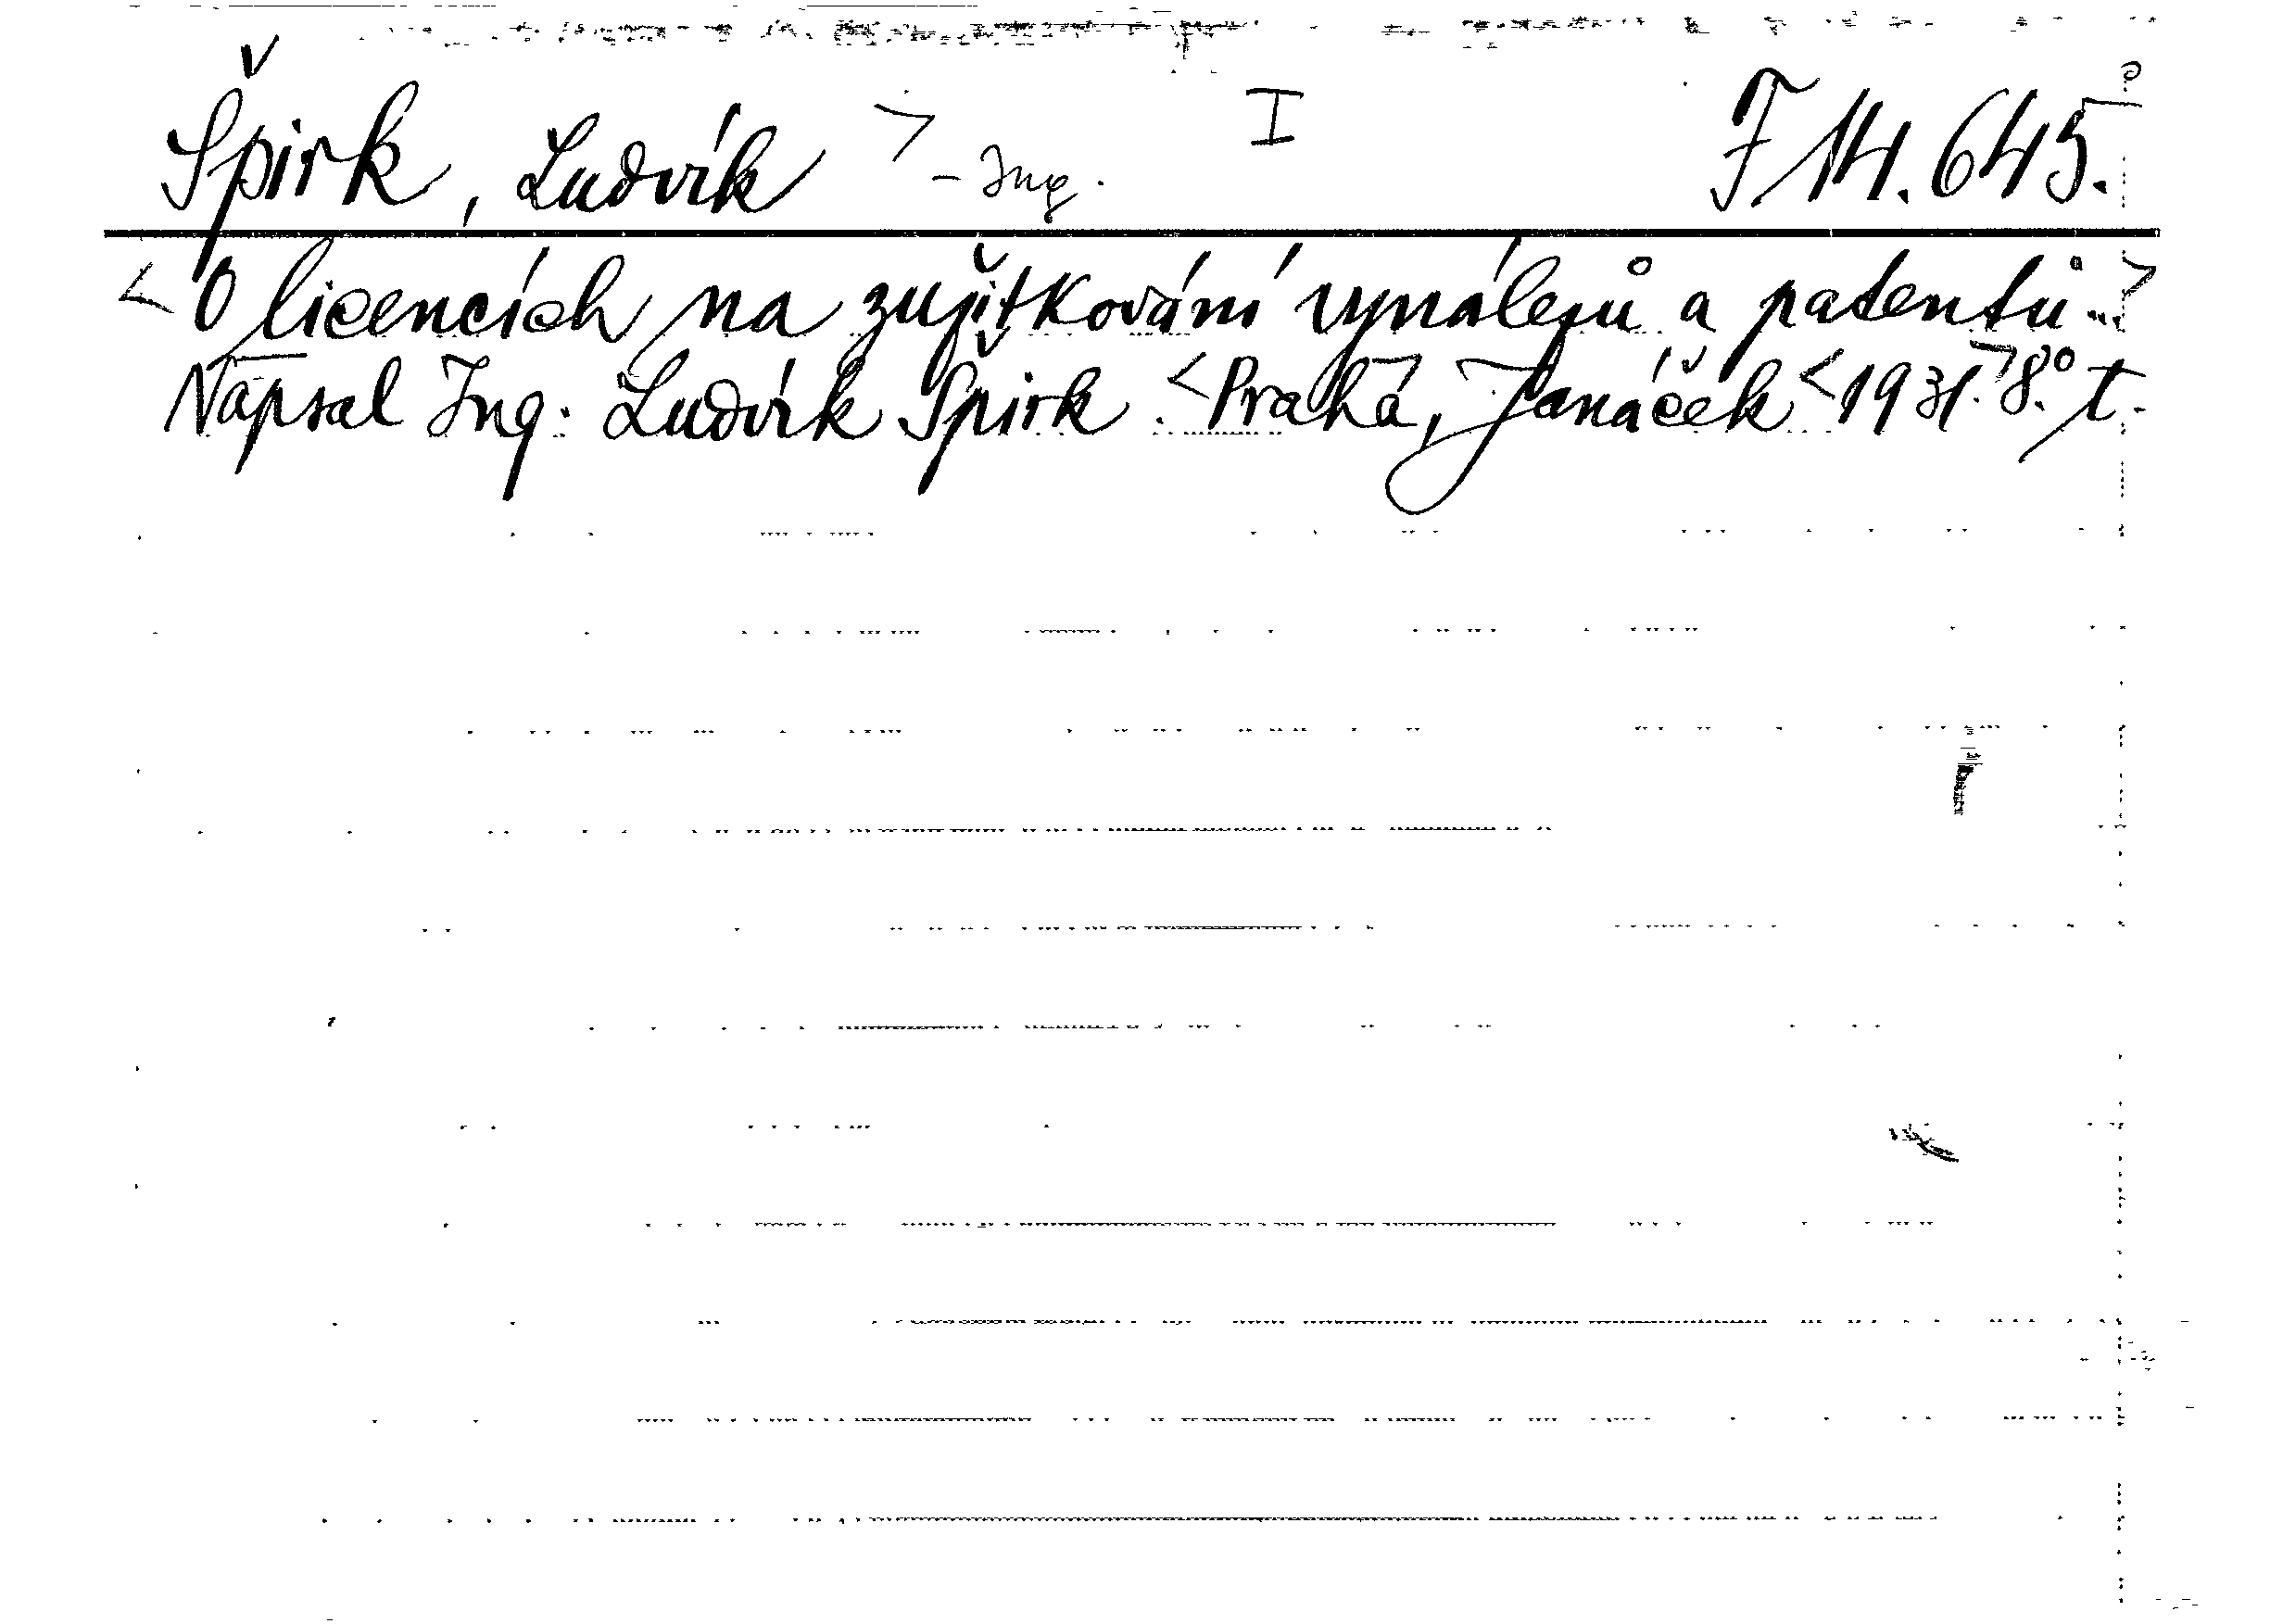 Špirk, Ludvík > - Ing. I F 14.645.
< O licencích na zužitkování vynálezů a patentů...>
Napsal Ing. Ludvík Špirk. < Praha, Janáček < 1931. > 8.° t.